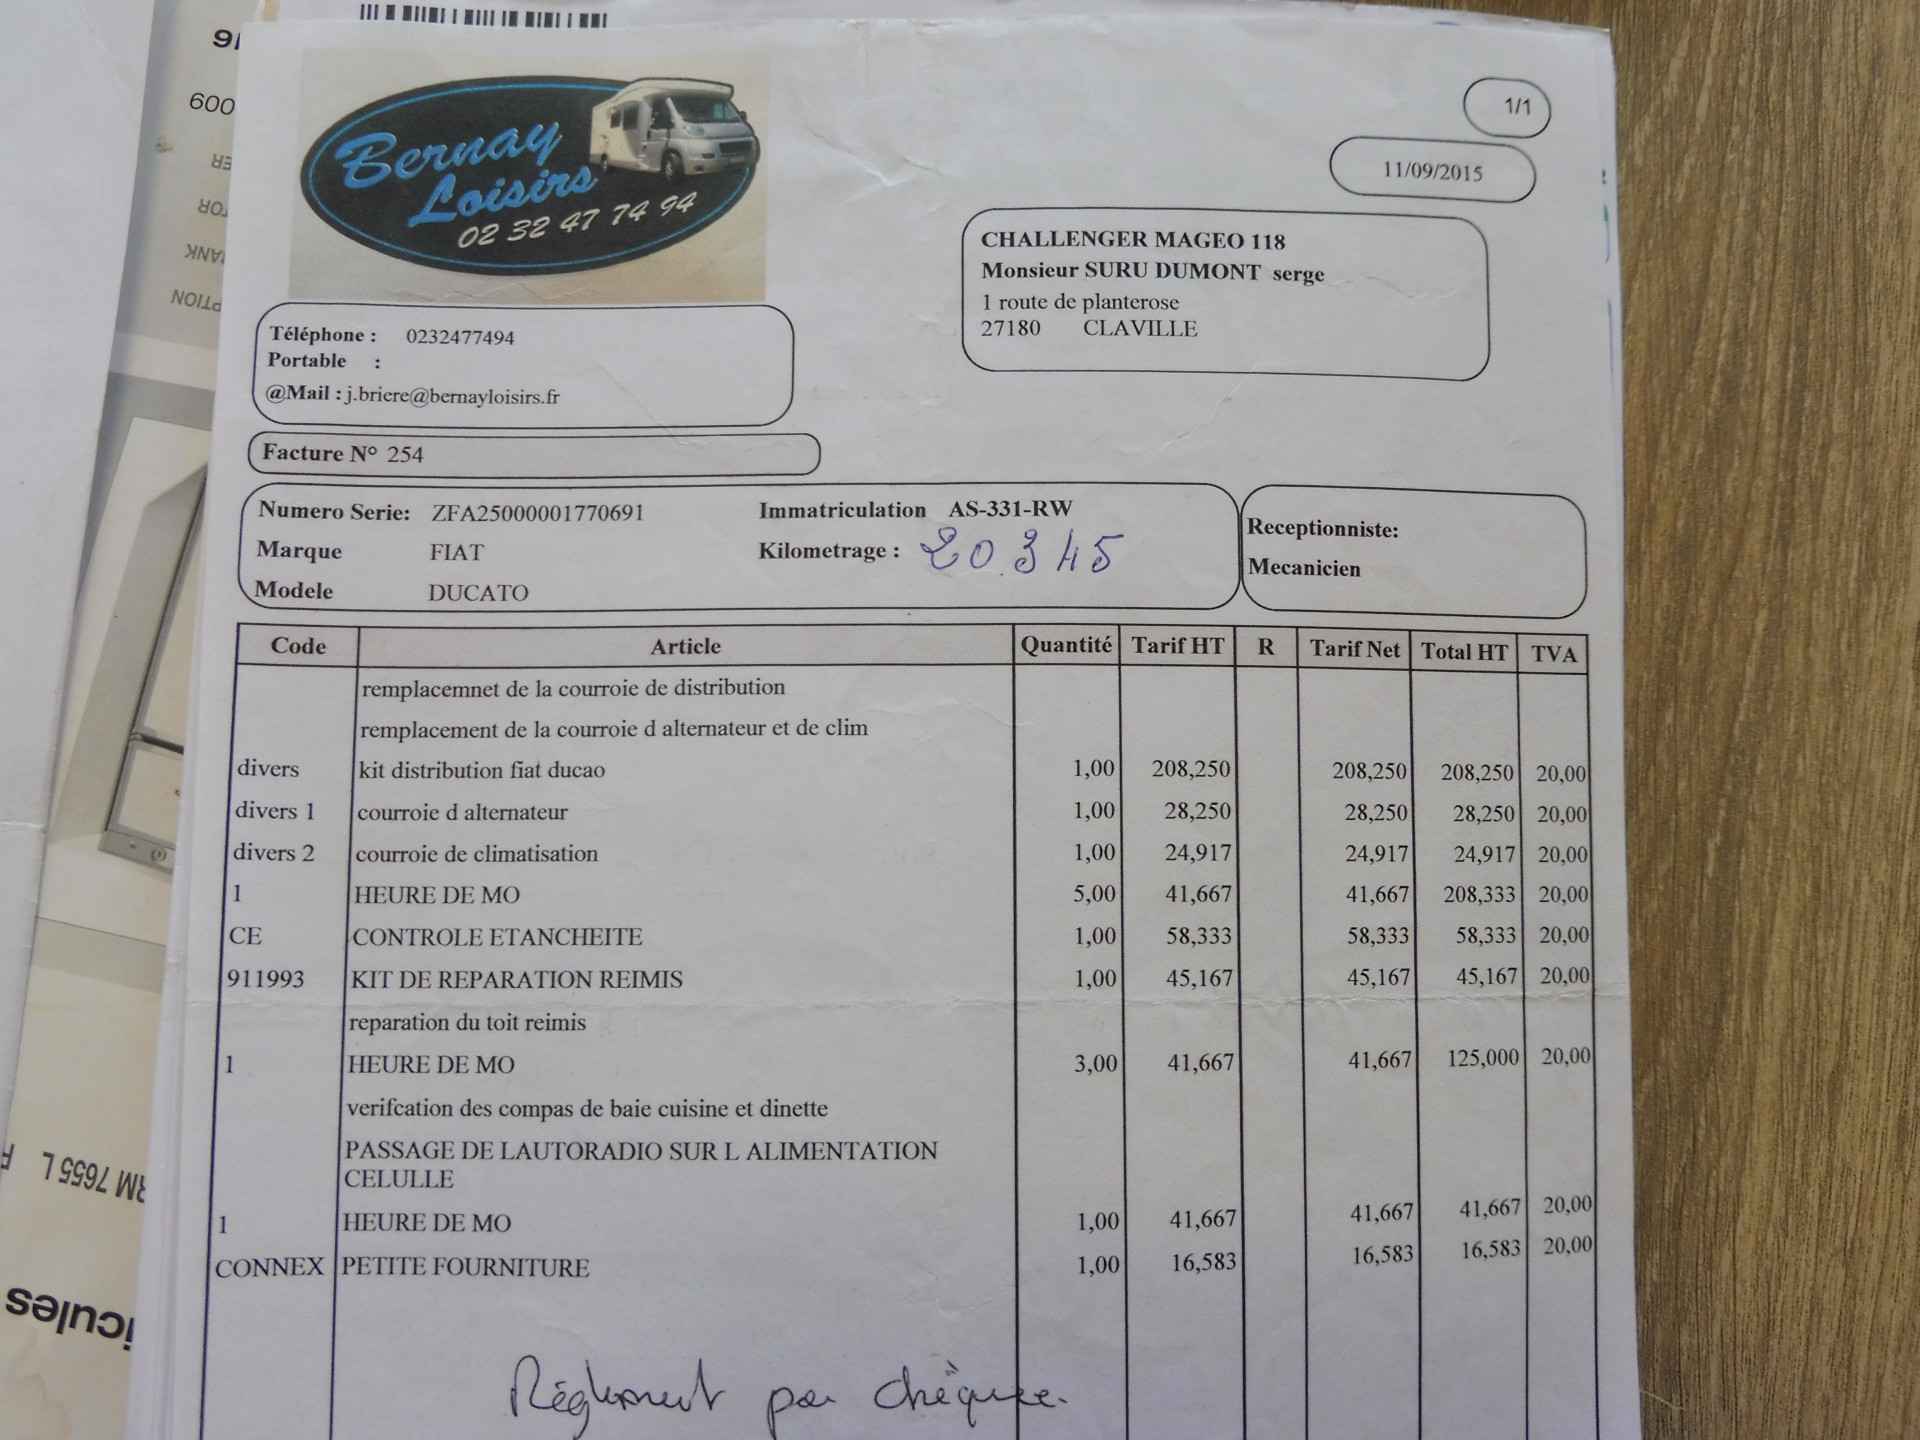 Bernay
Loisirs
02 32 47 74 94
1/1
11/09/2015
CHALLENGER MAGEO 118
Monsieur SURU DUMONT serge
1 route de planterose
27180 CLAVILLE
Téléphone : 0232477494
Portable :
@Mail : j.briere@bernayloisirs.fr
Facture N° 254
Numero Serie: ZFA25000001770691 Immatriculation AS-331-RW
Marque FIAT Kilometrage : 20.345
Modele DUCATO
Receptionniste:
Mecanicien
Code Article Quantité Tarif HT R Tarif Net Total HT TVA
remplacemnet de la courroie de distribution
remplacement de la courroie d alternateur et de clim
divers kit distribution fiat ducao 1,00 208,250 208,250 208,250 20,00
divers 1 courroie d alternateur 1,00 28,250 28,250 28,250 20,00
divers 2 courroie de climatisation 1,00 24,917 24,917 24,917 20,00
1 HEURE DE MO 5,00 41,667 41,667 208,333 20,00
CE CONTROLE ETANCHEITE 1,00 58,333 58,333 58,333 20,00
911993 KIT DE REPARATION REIMIS 1,00 45,167 45,167 45,167 20,00
reparation du toit reimis
1 HEURE DE MO 3,00 41,667 41,667 125,000 20,00
verifcation des compas de baie cuisine et dinette
PASSAGE DE LAUTORADIO SUR L ALIMENTATION
CELULLE
1 HEURE DE MO 1,00 41,667 41,667 41,667 20,00
CONNEX PETITE FOURNITURE 1,00 16,583 16,583 16,583 20,00
Réglement par chèque.
600
RM 7655 L
icules